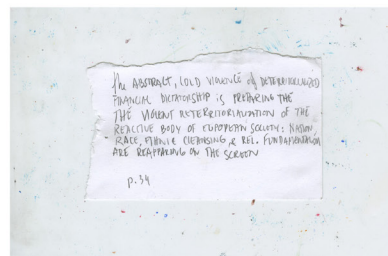 The ABSTRACT, COLD VIOLENCE of DETERRITORIALIZED
FINANCIAL DICTATORSHIP is PREPARING THE
THE VIOLENT RETERRITORIALIZATION OF THE
REACTIVE BODY OF EUROPEAN SOCIETY: NATION,
RACE, ETHNIC CLEANSING, & REL. FUNDAMENTALISM
ARE REAPPEARING ON THE SCREEN
p.34